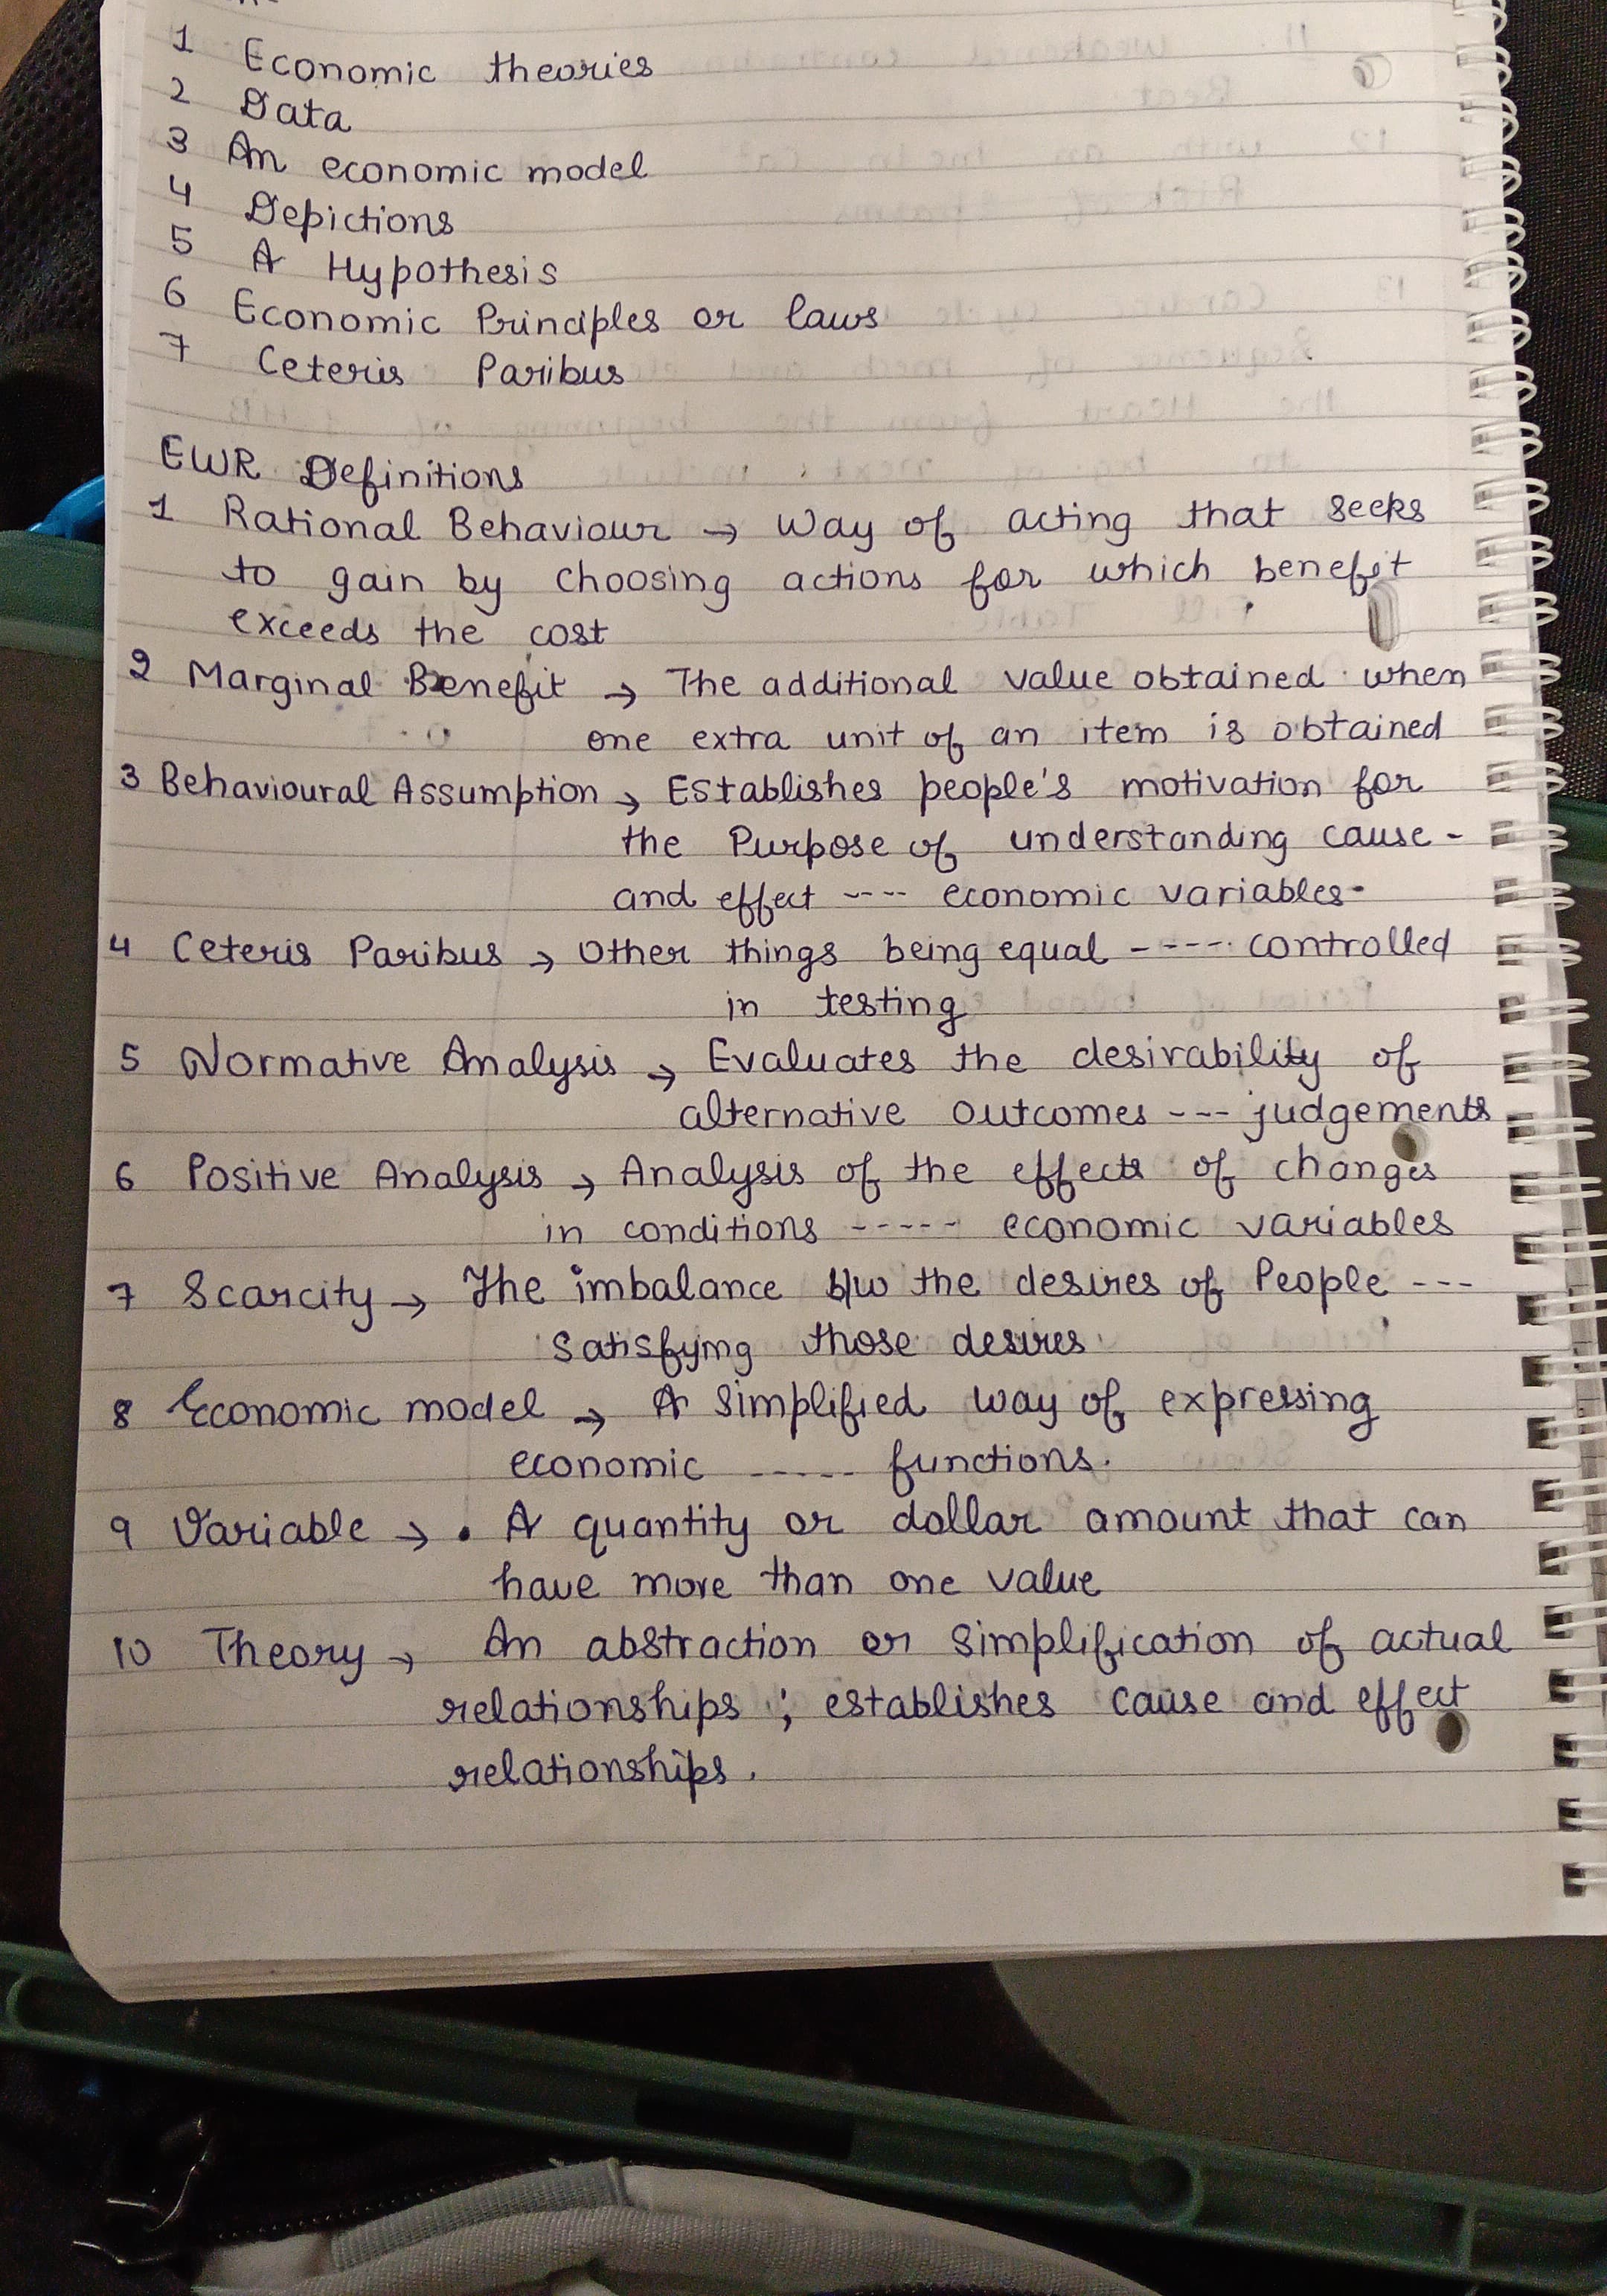 1 Economic theories
2 Data
3 An economic model
4 Depictions
5 A Hypothesis
6 Economic Principles or laws
7 Ceteris Paribus
EWR Definitions
1 Rational Behaviour → Way of acting that seeks
to gain by choosing actions for which benefit
exceeds the cost
2 Marginal Benefit → The additional value obtained when
one extra unit of an item is obtained
3 Behavioural Assumption → Establishes people's motivation for
the Purpose of understanding cause-
and effect ---- economic variables.
4 Ceteris Paribus → Other things being equal ----- controlled
in testing
5 Normative Analysis → Evaluates the desirability of
alternative outcomes --- judgements
6 Positive Analysis → Analysis of the effects of changes
in conditions ----- economic variables
7 Scarcity → The imbalance b/w the desires of People ---
satisfying those desires
8 Economic model → A simplified way of expressing
economic ----- functions.
9 Variable → • A quantity or dollar amount that can
have more than one value
10 Theory → An abstraction or simplification of actual
relationships ; establishes cause and effect
relationships.